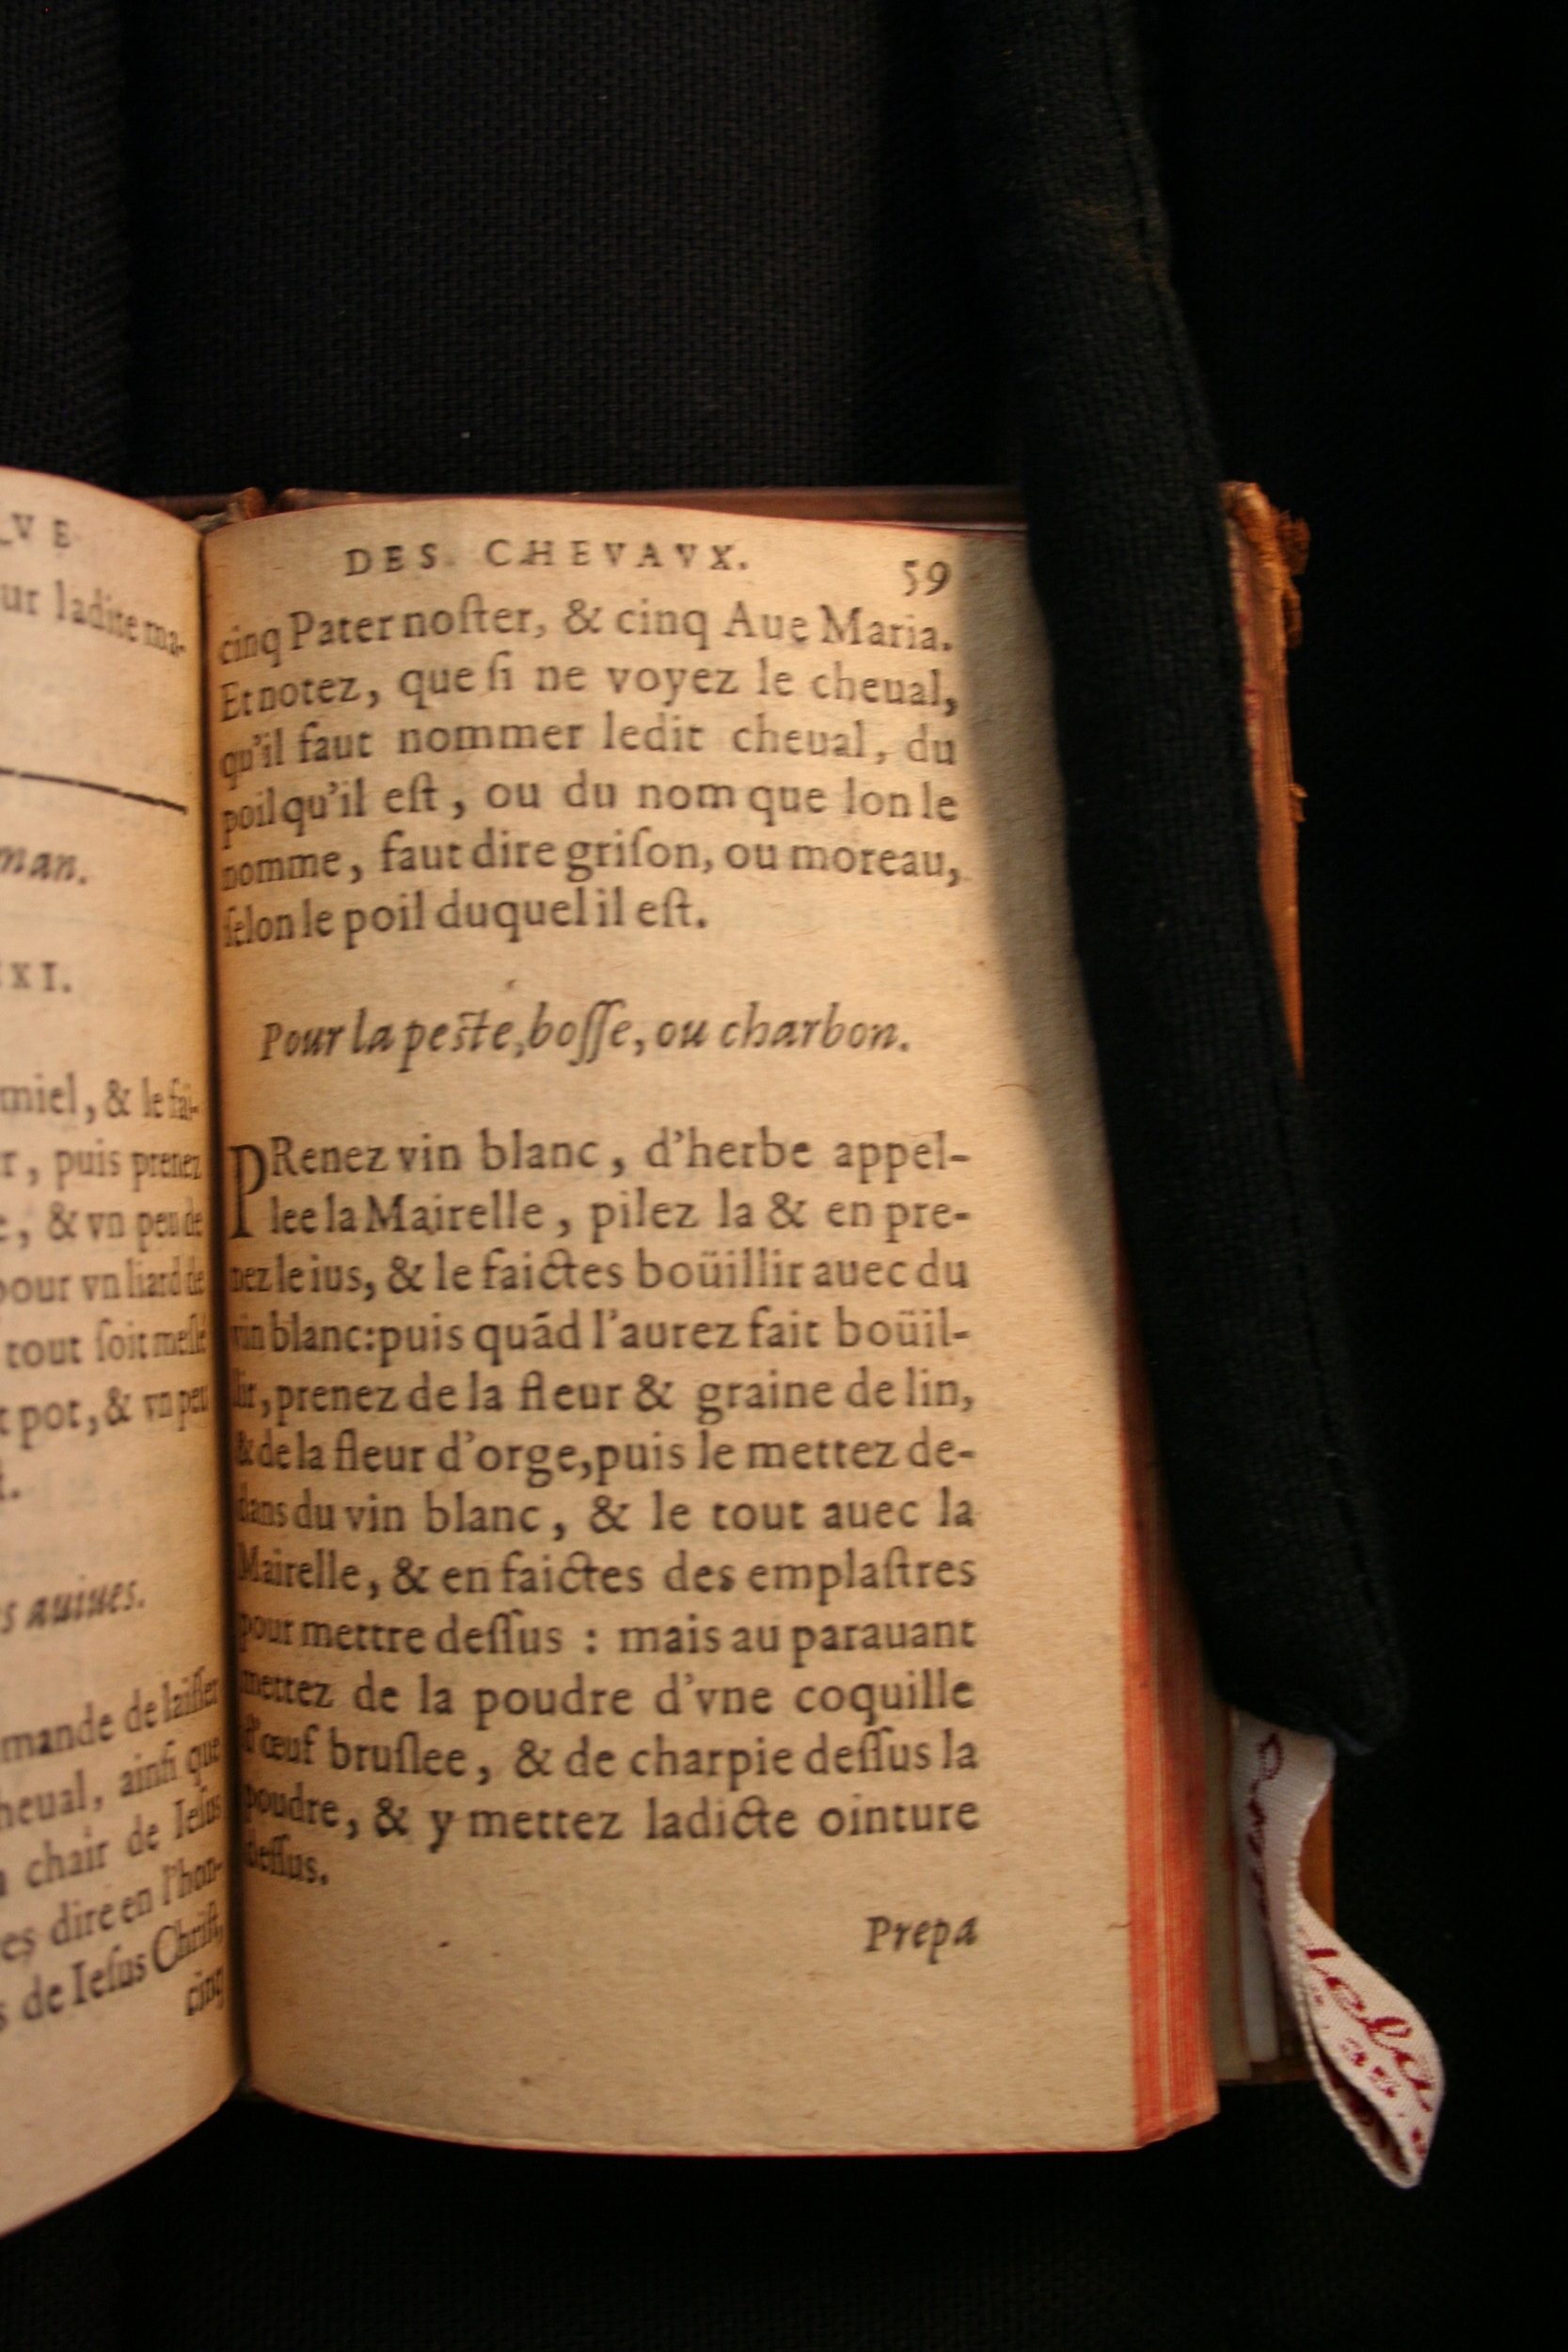 LVE
ur ladite ma-
man.
XXI.
miel, & le fai-
r, puis prenez
e, & vn peu de
pour vn liard de
tout ſoit meſlé
t pot, & vn peu
s auiues.
mande de laiſſer
heual, ainſi que
a chair de Ieſus
es dire en l'hon-
s de Ieſus Chriſt,
cinq
DES CHEVAVX. 59
cinq Pater noſter, & cinq Aue Maria.
Et notez, que ſi ne voyez le cheual,
qu'il faut nommer ledit cheual, du
poil qu'il eſt, ou du nom que lon le
nomme, faut dire griſon, ou moreau,
ſelon le poil duquel il eſt.
Pour la peſte, boſſe, ou charbon.
PRenez vin blanc, d'herbe appel-
lee la Mairelle, pilez la & en pre-
nez le ius, & le faictes boüillir auec du
vin blanc: puis quãd l'aurez fait boüil-
lir, prenez de la fleur & graine de lin,
& de la fleur d'orge, puis le mettez de-
dans du vin blanc, & le tout auec la
Mairelle, & en faictes des emplaſtres
pour mettre deſſus : mais au parauant
mettez de la poudre d'vne coquille
d'œuf bruſlee, & de charpie deſſus la
poudre, & y mettez ladicte ointure
deſſus.
Prepa